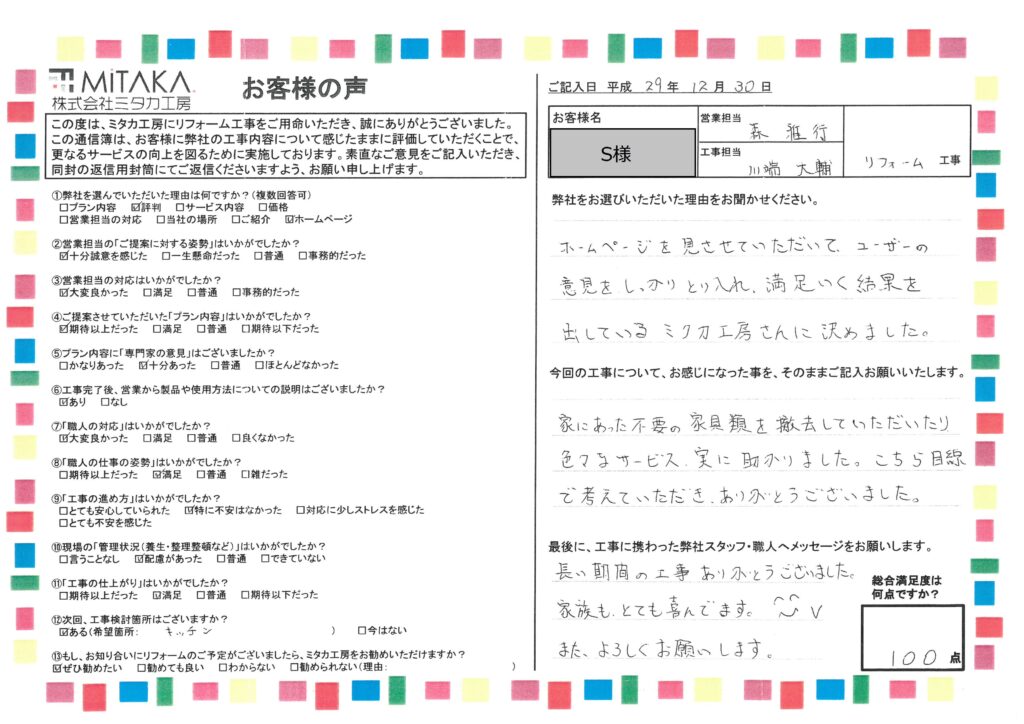 MiTAKA.
株式会社ミタカ工房
お客様の声
この度は、ミタカ工房にリフォーム工事をご用命いただき、誠にありがとうございました。
この通信簿は、お客様に弊社の工事内容について感じたままに評価していただくことで、
更なるサービスの向上を図るために実施しております。素直なご意見をご記入いただき、
同封の返信用封筒にてご返信くださいますよう、お願い申し上げます。
①弊社を選んでいただいた理由は何ですか？(複数回答可)
□プラン内容 ☑評判 □サービス内容 □価格
□営業担当の対応 □当社の場所 □ご紹介 ☑ホームページ
②営業担当の「ご提案に対する姿勢」はいかがでしたか？
☑十分誠意を感じた □一生懸命だった □普通 □事務的だった
③営業担当の対応はいかがでしたか？
☑大変良かった □満足 □普通 □事務的だった
④ご提案させていただいた「プラン内容」はいかがでしたか？
☑期待以上だった □満足 □普通 □期待以下だった
⑤プラン内容に「専門家の意見」はございましたか？
□かなりあった ☑十分あった □普通 □ほとんどなかった
⑥工事完了後、営業から製品や使用方法についての説明はございましたか？
☑あり □なし
⑦「職人の対応」はいかがでしたか？
☑大変良かった □満足 □普通 □良くなかった
⑧「職人の仕事の姿勢」はいかがでしたか？
□期待以上だった ☑満足 □普通 □雑だった
⑨「工事の進め方」はいかがでしたか？
□とても安心していられた ☑特に不安はなかった □対応に少しストレスを感じた
□とても不安を感じた
⑩現場の「管理状況(養生・整理整頓など)」はいかがでしたか？
□言うことなし ☑配慮があった □普通 □できていない
⑪「工事の仕上がり」はいかがでしたか？
□期待以上だった ☑満足 □普通 □期待以下だった
⑫次回、工事検討箇所はございますか？
☑ある(希望箇所: キッチン ) □今はない
⑬もし、お知り合いにリフォームのご予定がございましたら、ミタカ工房をお勧めいただけますか？
☑ぜひ勧めたい □勧めても良い □わからない □勧められない(理由: )
ご記入日 平成 29 年 12 月 30 日
お客様名
S様
営業担当 森 雅行
工事担当 川端 大輔
リフォーム 工事
弊社をお選びいただいた理由をお聞かせください。
ホームページを見させていただいて、ユーザーの
意見をしっかりとり入れ、満足いく結果を
出しているミタカ工房さんに決めました。
今回の工事について、お感じになった事を、そのままご記入お願いいたします。
家にあった不要の家具類を撤去していただいたり
色々なサービス、実に助かりました。こちら目線
で考えていただき、ありがとうございました。
最後に、工事に携わった弊社スタッフ・職人へメッセージをお願いします。
長い期間の工事ありがとうございました。
家族も、とても喜んでます。
また、よろしくお願いします。
総合満足度は
何点ですか？
100 点